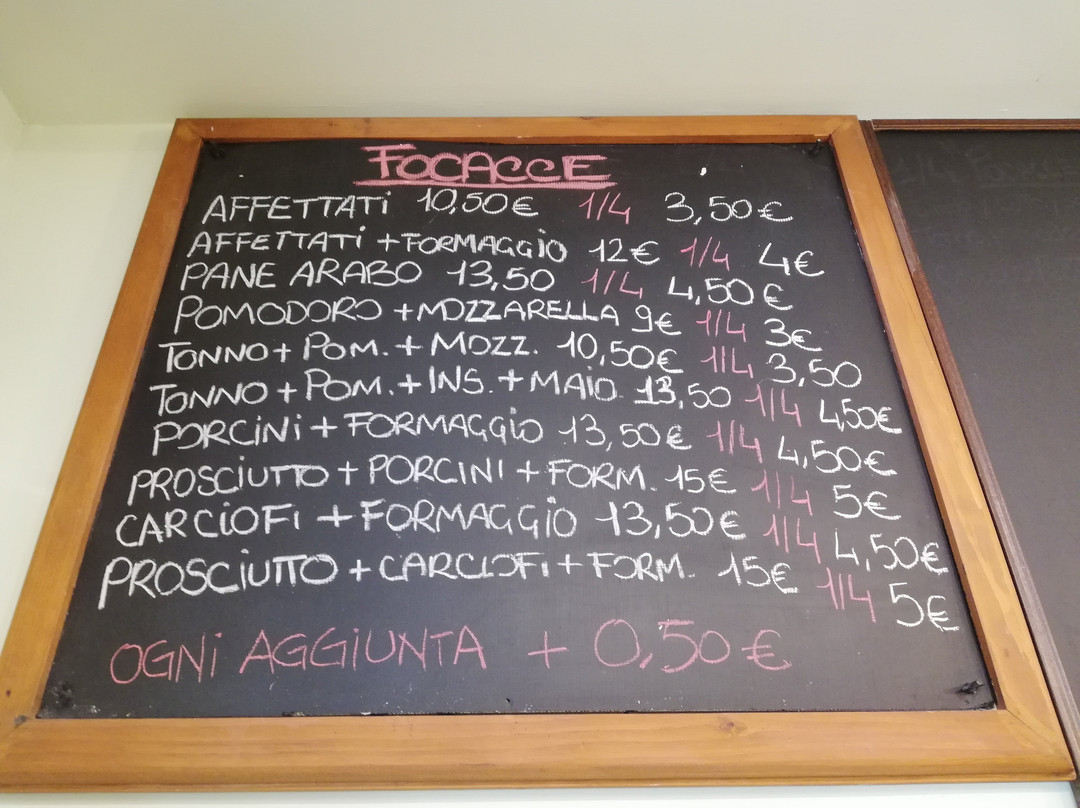 FOCACCE
AFFETTATI 10,50€ 1/4 3,50€
AFFETTATI +FORMAGGIO 12€ 1/4 4€
PANE ARABO 13,50 1/4 4,50€
POMODORO +MOZZARELLA 9€ 1/4 3€
TONNO+ POM. + MOZZ. 10,50€ 1/4 3,50
TONNO+POM.+INS.+MAIO. 13,50 1/4 4,50€
PORCINI+FORMAGGIO 13,50€ 1/4 4,50€
PROSCIUTTO + PORCINI + FORM. 15€ 1/4 5€
CARCIOFI + FORMAGGIO 13,50€ 1/4 4,50€
PROSCIUTTO + CARCIOFI + FORM. 15€ 1/4 5€
OGNI AGGIUNTA + 0,50€